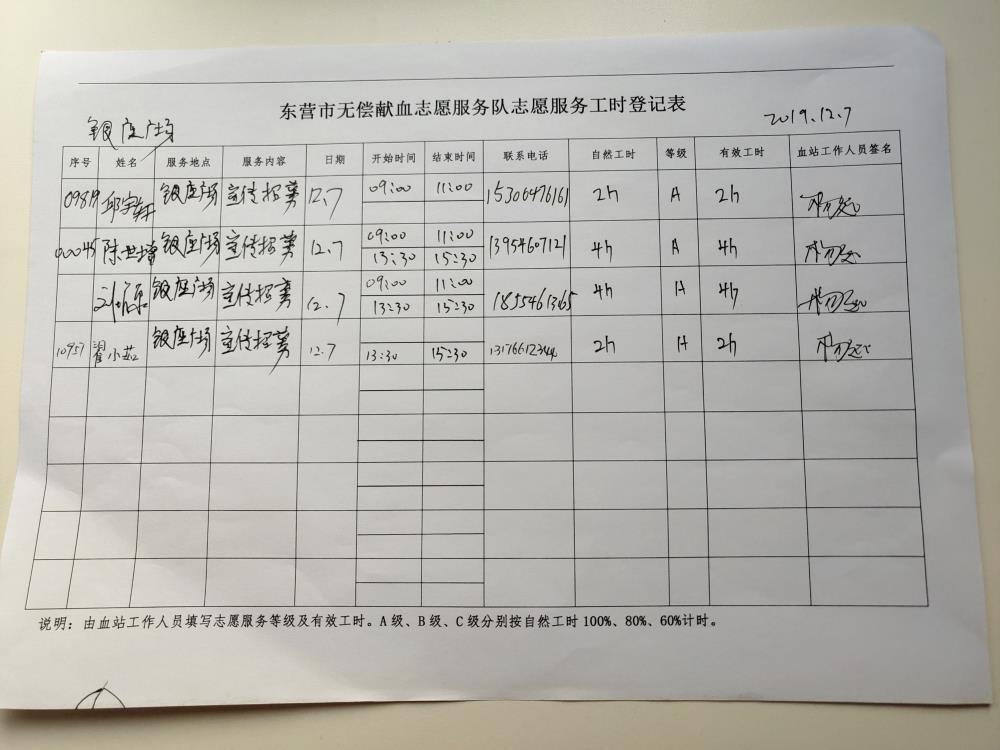 东营市无偿献血志愿服务队志愿服务工时登记表
银座广场 2019.12.7
序号 姓名 服务地点 服务内容 日期 开始时间 结束时间 联系电话 自然工时 等级 有效工时 血站工作人员签名
银座广场 宣传招募 12.7 09:00 11:00 15306476161 2h A 2h
00045 银座广场 宣传招募 12.7 09:00 11:00 13954607121 4h A 4h
13:30 15:30
银座广场 宣传招募 12.7 09:00 11:00 1855461365 4h A 4h
13:30 15:30
10957 翟小茹 银座广场 宣传招募 12.7 13:30 15:30 2h A 2h
说明：由血站工作人员填写志愿服务等级及有效工时。A级、B级、C级分别按自然工时100%、80%、60%计时。